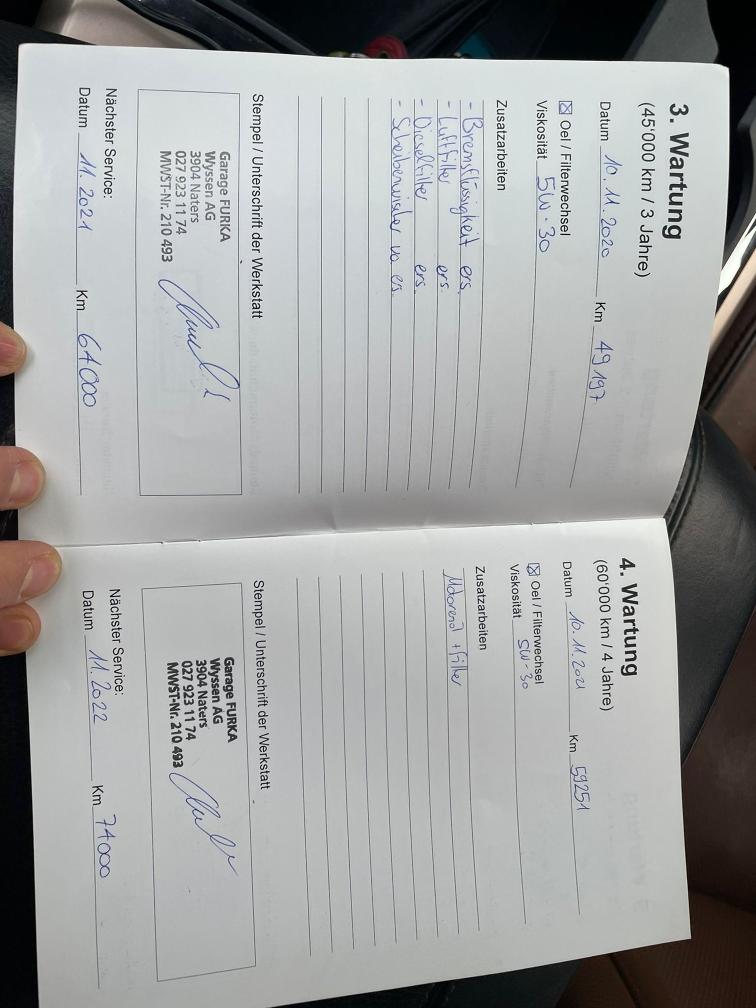 3. Wartung
(45'000 km / 3 Jahre)
Datum 10.11.2020 Km 49197
☒ Oel / Filterwechsel
Viskosität 5W-30
Zusatzarbeiten
- Bremsflüssigkeit ers.
- Luftfilter ers.
- Dieselfilter ers.
- Scheibenwischer vo. ers.
Stempel / Unterschrift der Werkstatt
Garage FURKA
Wyssen AG
3904 Naters
027 923 11 74
MWST-Nr. 210 493
Nächster Service:
Datum 11.2021 Km 64000
4. Wartung
(60'000 km / 4 Jahre)
Datum 10.11.2021 Km 59251
☒ Oel / Filterwechsel
Viskosität 5W-30
Zusatzarbeiten
Motorenöl + Filter
Stempel / Unterschrift der Werkstatt
Garage FURKA
Wyssen AG
3904 Naters
027 923 11 74
MWST-Nr. 210 493
Nächster Service:
Datum 11.2022 Km 74000